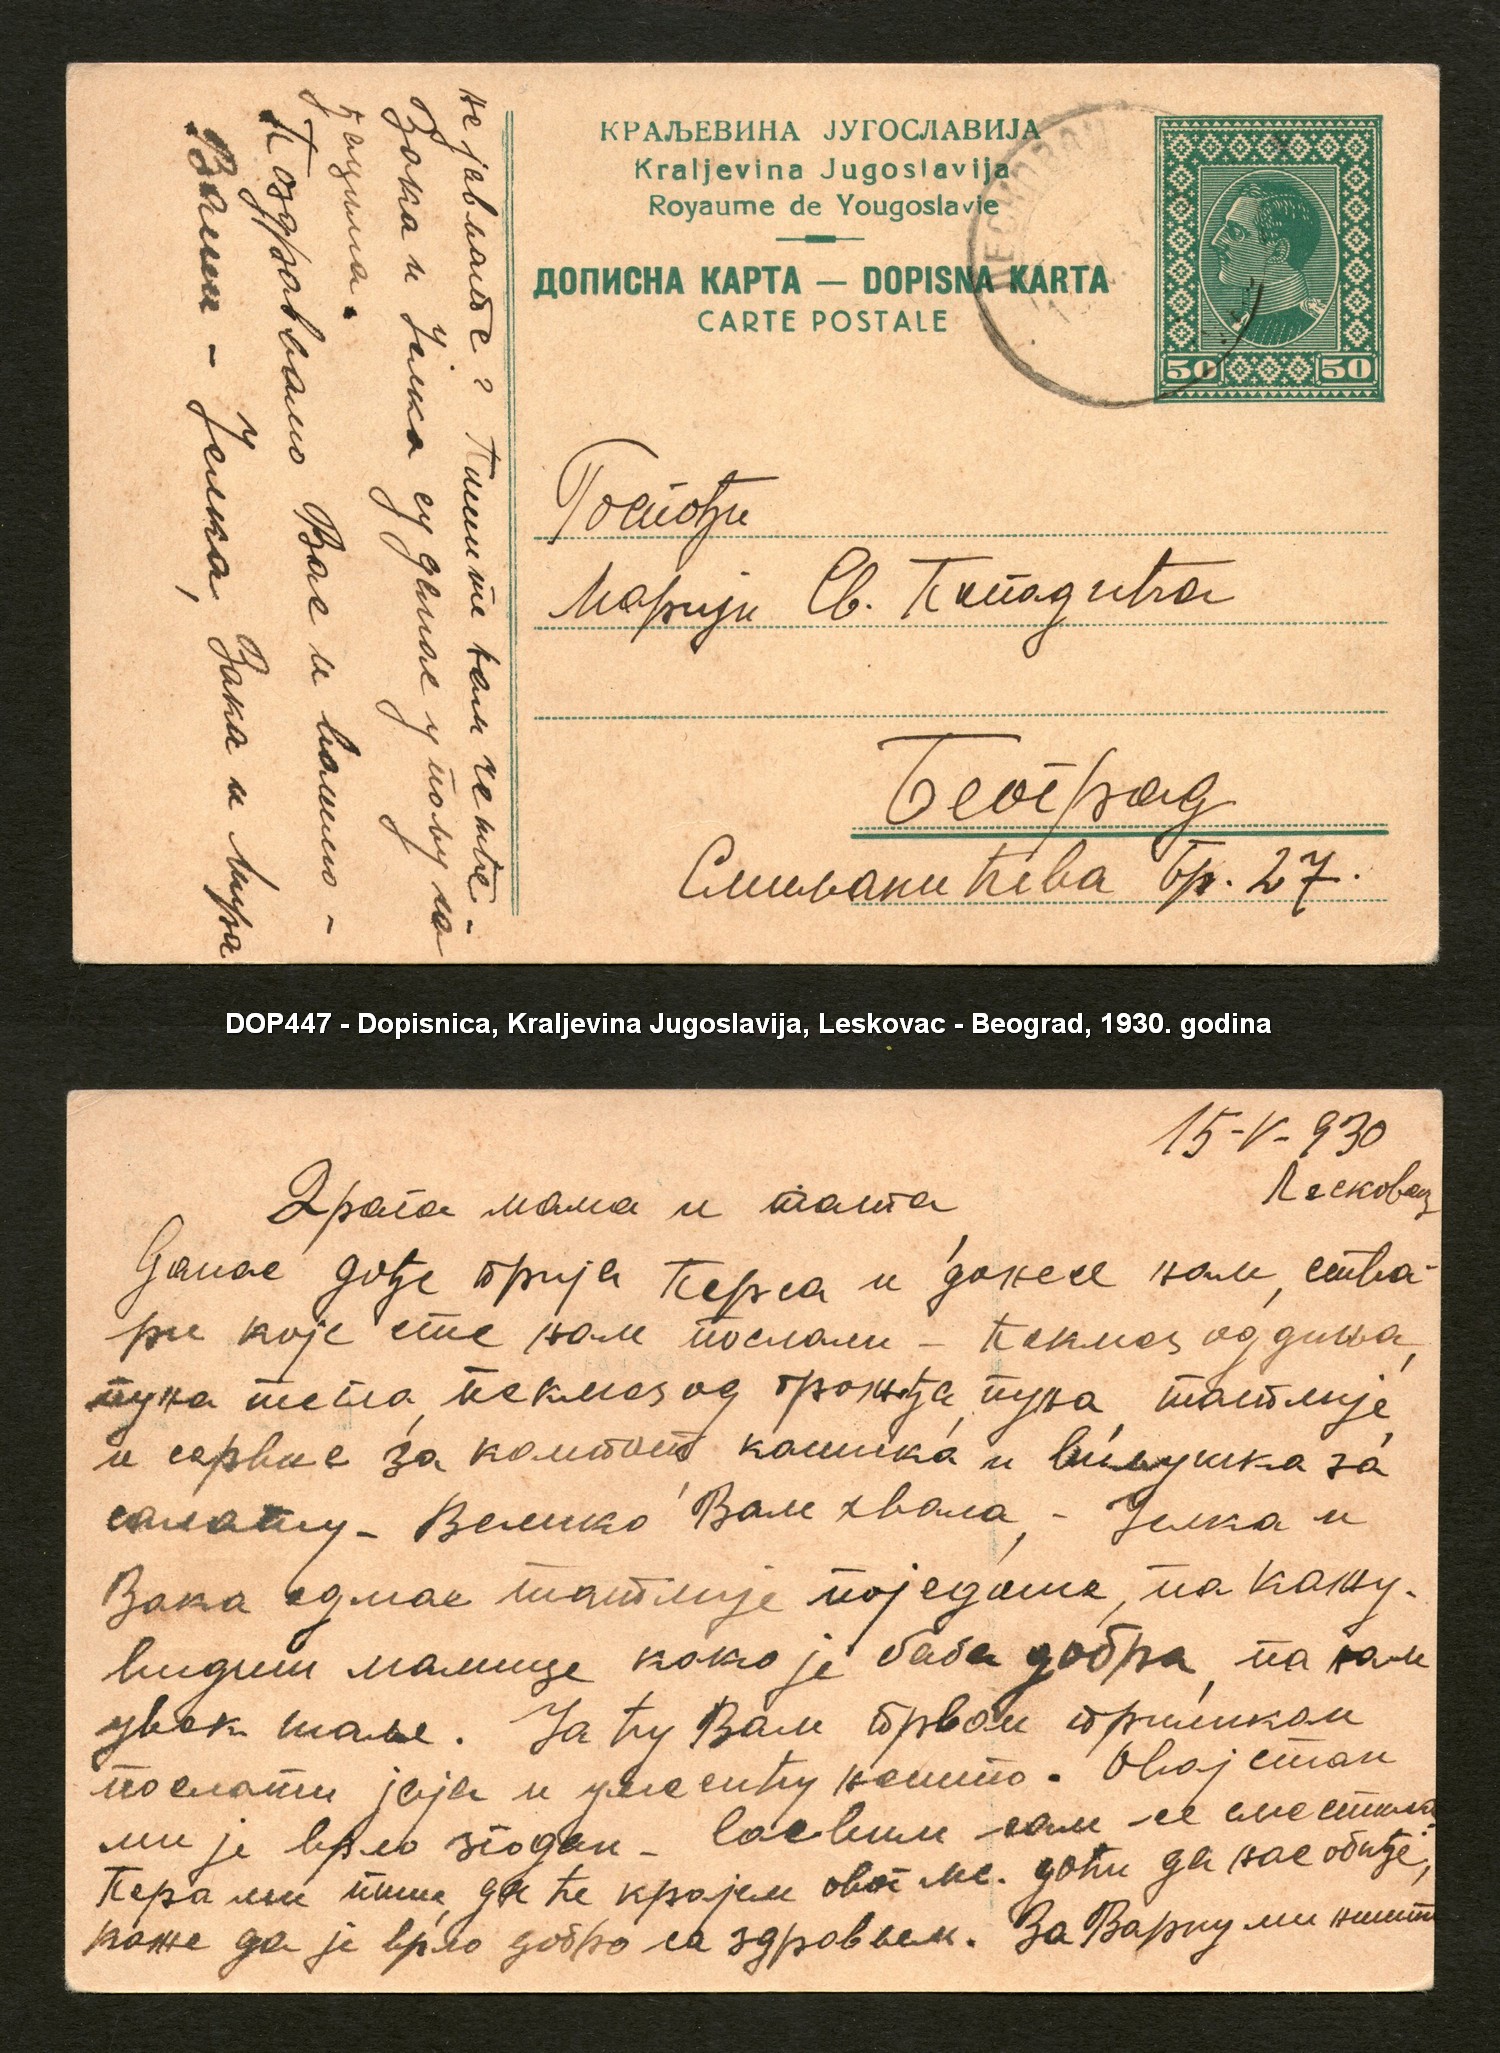 КРАЉЕВИНА ЈУГОСЛАВИЈА
Kraljevina Jugoslavija
Royaume de Yougoslavie
ДОПИСНА КАРТА — DOPISNA KARTA
CARTE POSTALE
ЛЕСКОВАЦ
50 50
Госпођи
Марији Св.
Београд
Смиљанићева бр. 27.
не јављате? Пишите нам чешће.-
Зака и Јелка су данас у
Поздрављамо Вас и волимо -
Ваши - Јелка, Зака и Мира
DOP447 - Dopisnica, Kraljevina Jugoslavija, Leskovac - Beograd, 1930. godina
15-V-930
Лесковац
Драга мама и тата
Данас дође прија Перса и донесе нам, ства-
ри које сте нам послали - пекмез од диња,
пуна тегла, пекмез од грожђа, пуна, татлије,
и сервис за компот кашика и виљушка за
салату - Велико Вам хвала, - Јелка и
Зака одмас татлије поједоше, па кажу-
видиш мамице како је баба добра, па нам
увек шаље. Ја ћу Вам првом приликом
послати јаја и умесићу нешто. Овај стан
ми је врло згодан - Сасвим сам се сместила
Пера ми пише, да ће крајем овог ме. доћи да нас обиђе,
каже да је врло добро са здрављем. За Варну ми ништа